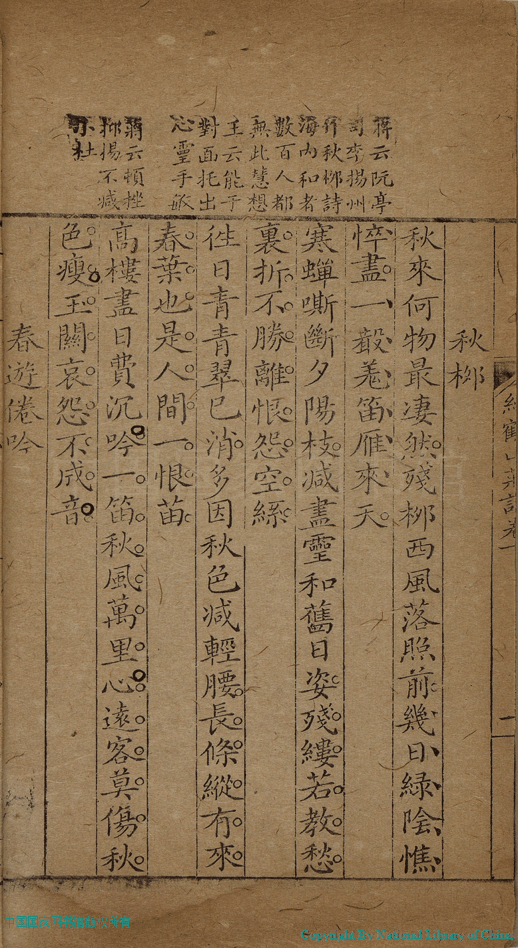 鶴山莊詩卷一
一
蔣云阮亭
司李揚州
作秋桺詩
海内和者
數百人都
無此慧想
王云能于
對面托出
心靈手敏
蔣云頓挫
抑揚不减
小杜
秋桺
秋來何物最淒然殘桺西風落照前幾日綠陰憔
悴盡一聲羗笛雁來天
寒蟬嘶斷夕陽枝减盡靈和舊日姿殘縷若教愁
裏折不勝離恨怨空絲
徃日青青翠已消多因秋色减輕腰長條縱有來
春葉也是人間一恨苗
高樓盡日費沉吟一笛秋風萬里心遠客莫傷秋
色瘦玉關哀怨不成音
春遊倦吟
Copyright By National Library of China